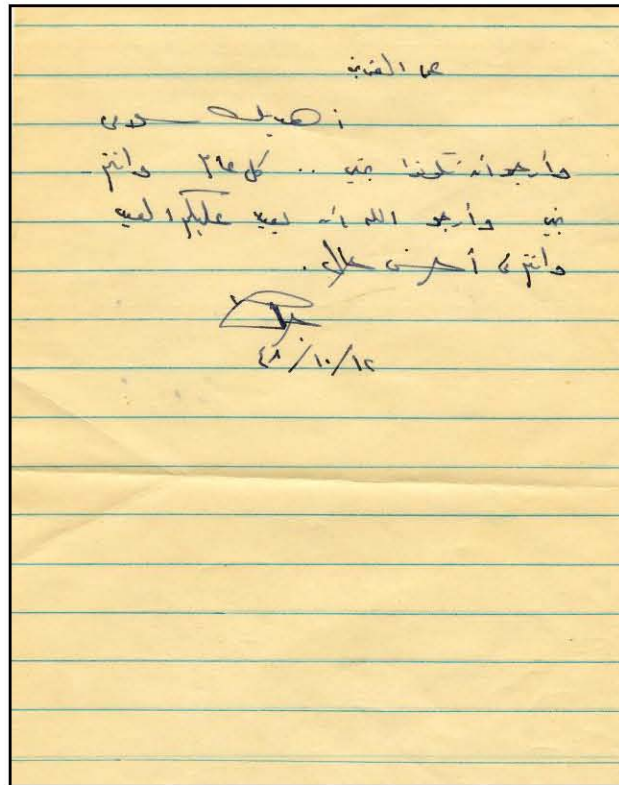 عمى العزيز
أهديك سلامى
وأرجو أن تكونوا بخير .. كل عام وانتم
بخير وأرجو الله أن يعيد عليكم العيد
وانتم فى أحسن حال .
٤٨/١٠/١٢